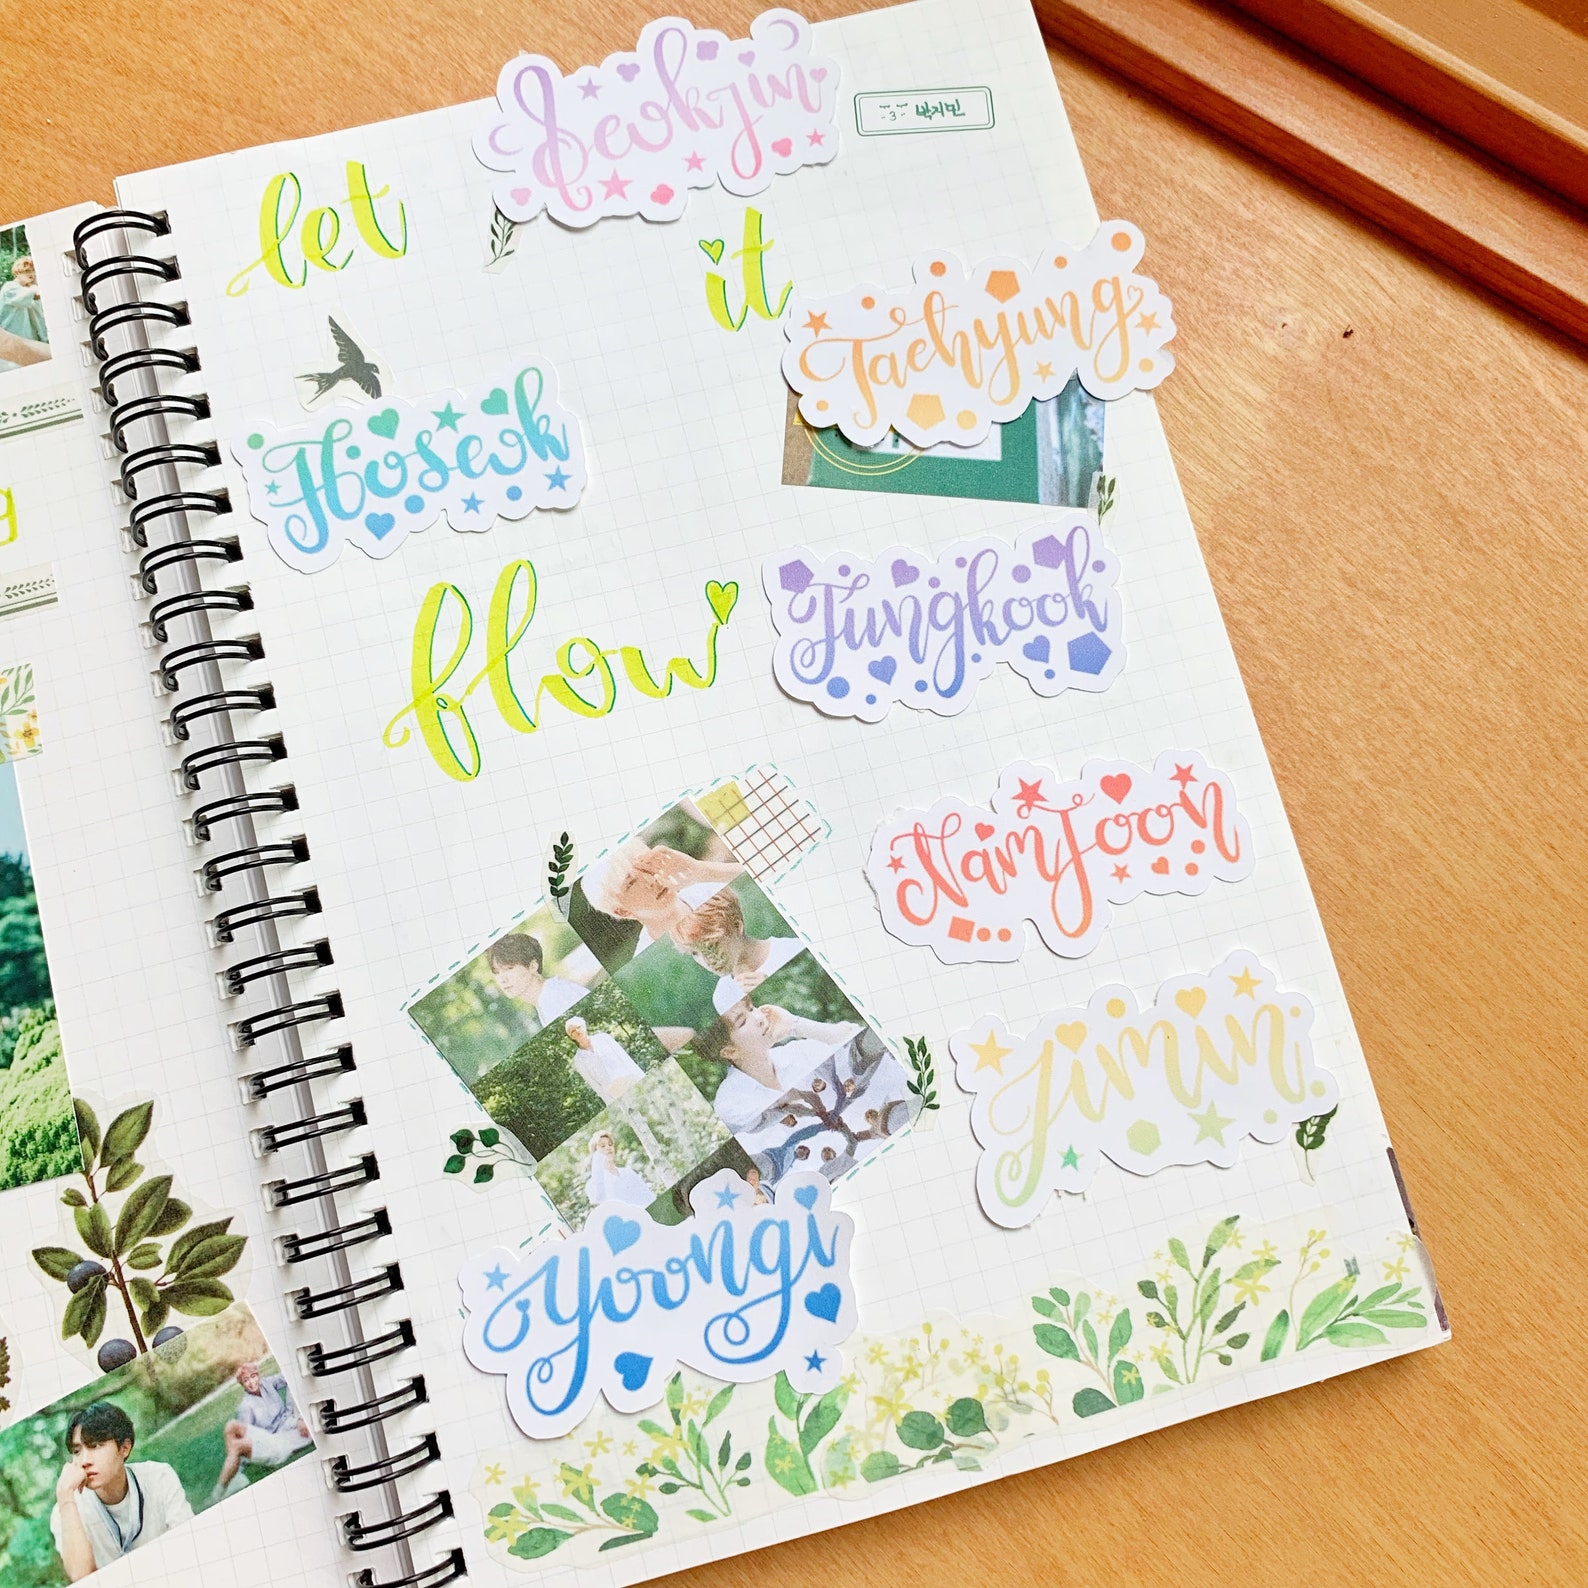 Seokjin
-3- 박지민
let
it
Taehyung
Hoseok
Jungkook
flow
NamJoon
Jimin
Yoongi